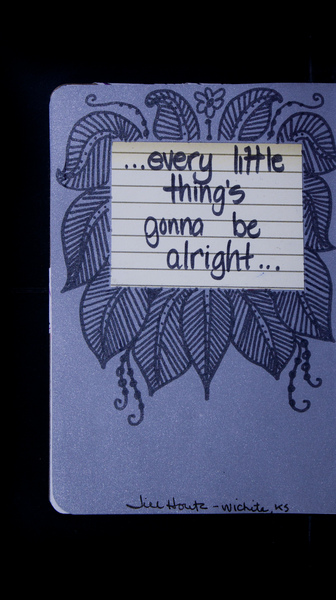 ...every little
thing's
gonna be
alright...
Jill Houtz - Wichita, KS